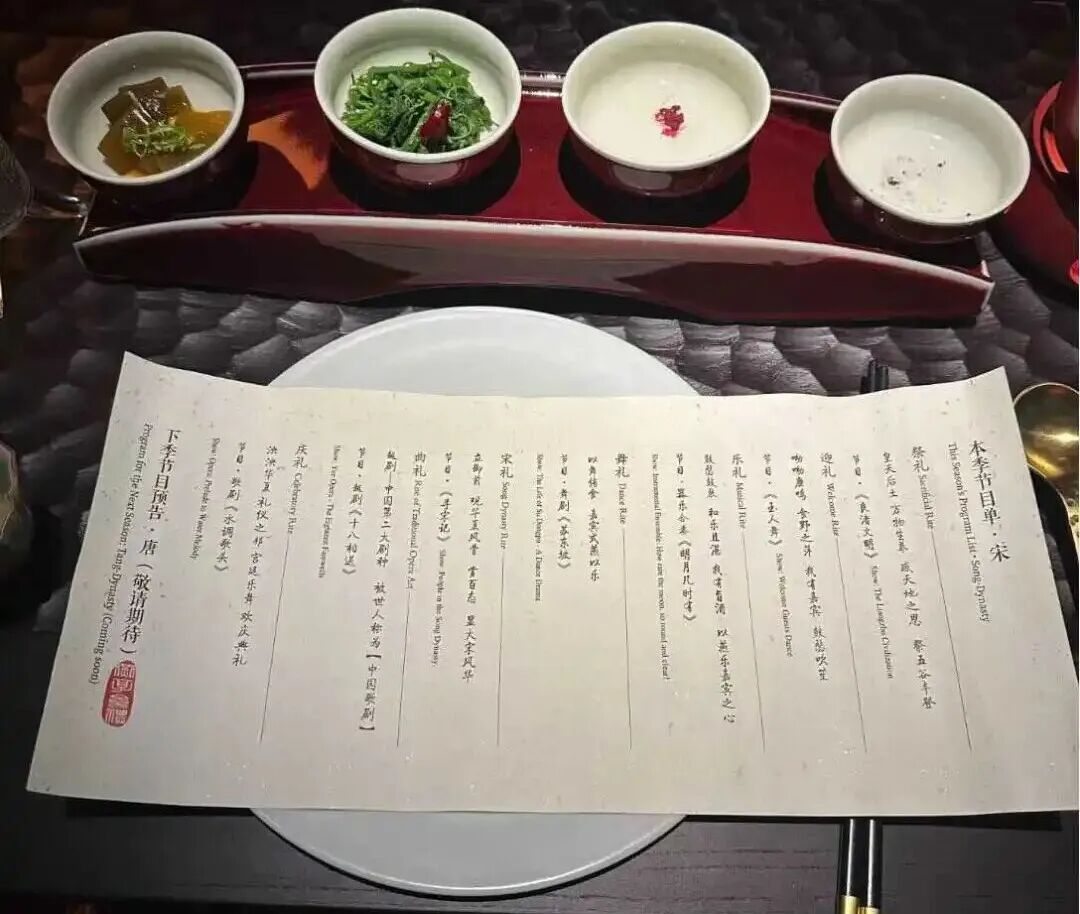 本季节目单·宋
This Season's Program List · Song Dynasty
祭礼 Sacrificial Rite
皇天后土 万物生养 感天地之恩 祭五谷丰登
节目·《良渚文明》 Show: The Liangzhu Civilization
迎礼 Welcome Rite
呦呦鹿鸣 食野之苹 我有嘉宾 鼓瑟吹笙
节目·《玉人舞》 Show: Welcome Guests Dance
乐礼 Musical Rite
鼓瑟鼓琴 和乐且湛 我有旨酒 以燕乐嘉宾之心
节目·器乐合奏《明月几时有》
Show: Instrumental Ensemble: How rare the moon, so round and clear!
舞礼 Dance Rite
以舞侑食 嘉宾式燕以乐
节目·舞剧《苏东坡》
Show: The Life of Su Dongpo - A Dance Drama
宋礼 Song Dynasty Rite
立御前 观华夏风骨 赏百态 显大宋风华
节目·《寻宋记》 Show: People in the Song Dynasty
曲礼 Rite of Traditional Opera Art
越剧·中国第二大剧种 被世人称为【中国歌剧】
节目·越剧《十八相送》
Show: Yue Opera - The Eighteen Farewells
庆礼 Celebratory Rite
泱泱华夏 礼仪之邦 宫廷乐舞 欢庆典礼
节目·歌剧《水调歌头》
Show: Opera: Prelude to Water Melody
下季节目预告·唐（敬请期待）
Program for the Next Season: Tang Dynasty (Coming soon)